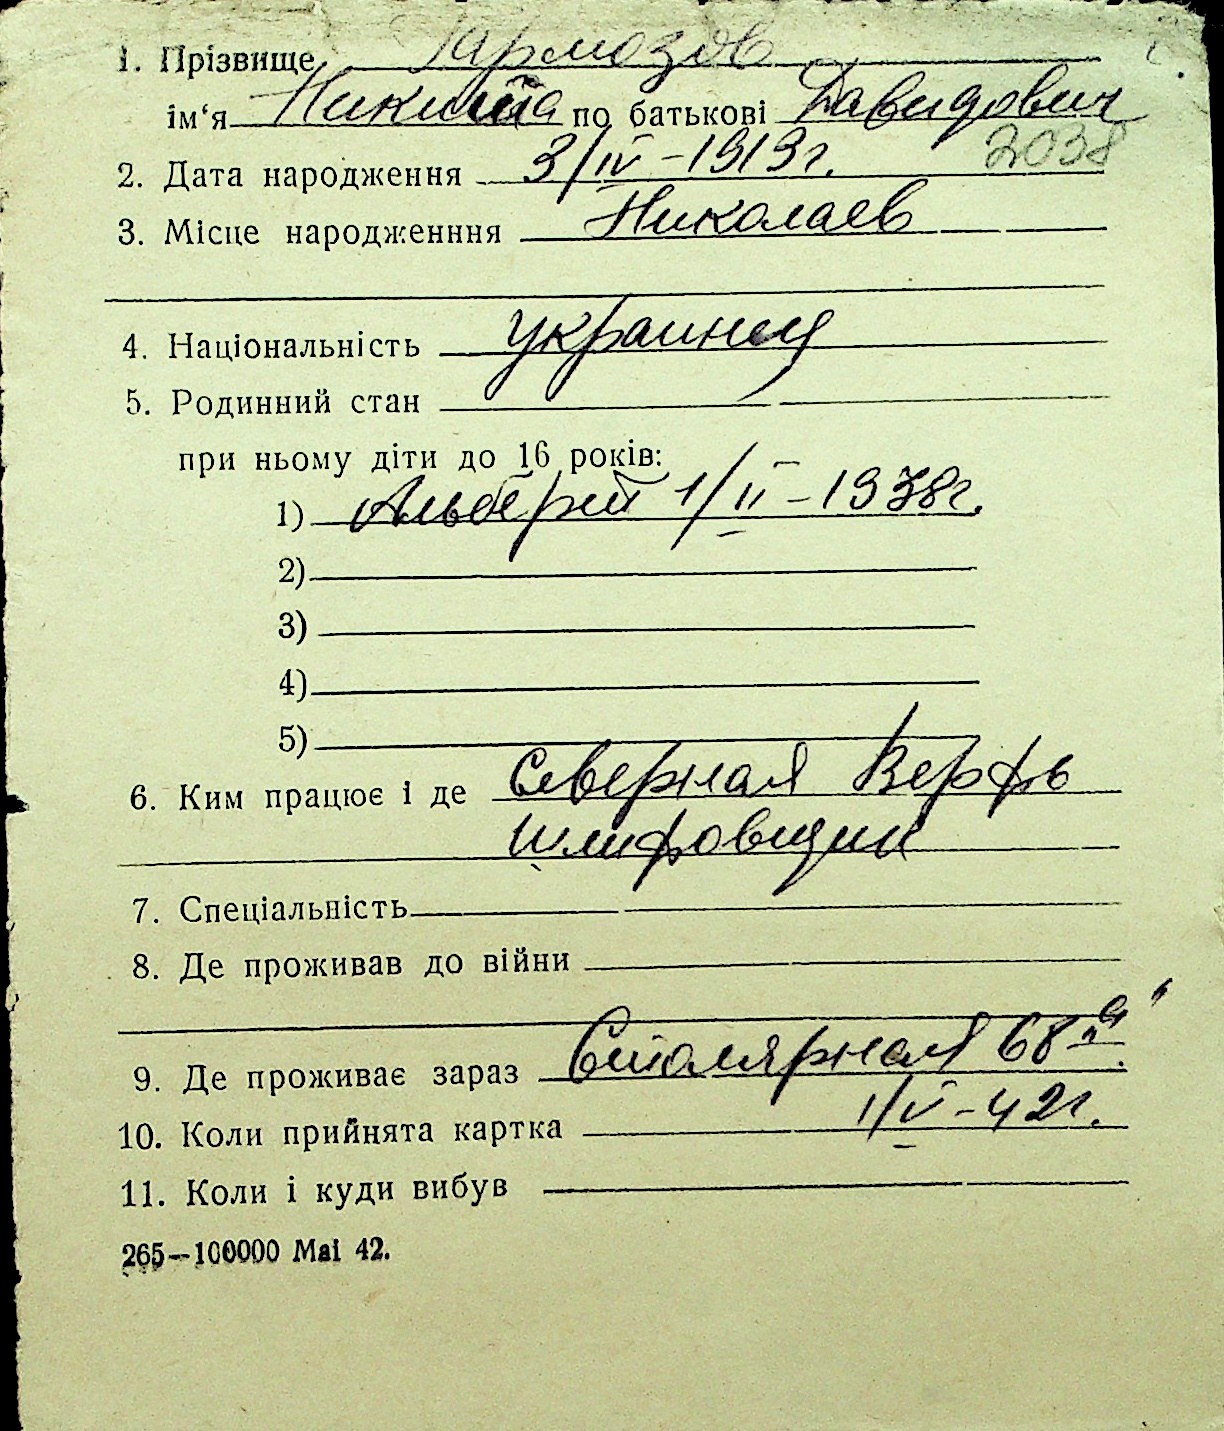 1. Прізвище Гармозов
ім‘я Никита по батькові Давидович
2038
2. Дата народження 3/IV – 1913г.
3. Місце народженння Николаев
4. Національність украинец
5. Родинний стан
при ньому діти до 16 років:
1) Альберт 1/II – 1938г.
2)
3)
4)
5)
6. Ким працює і де Северная Верфь
шлифовщик
7. Спеціальність
8. Де проживав до війни
9. Де проживає зараз Столярная 68 "а"
10. Коли прийнята картка 1/V – 42г.
11. Коли і куди вибув
265—100000 Mai 42.